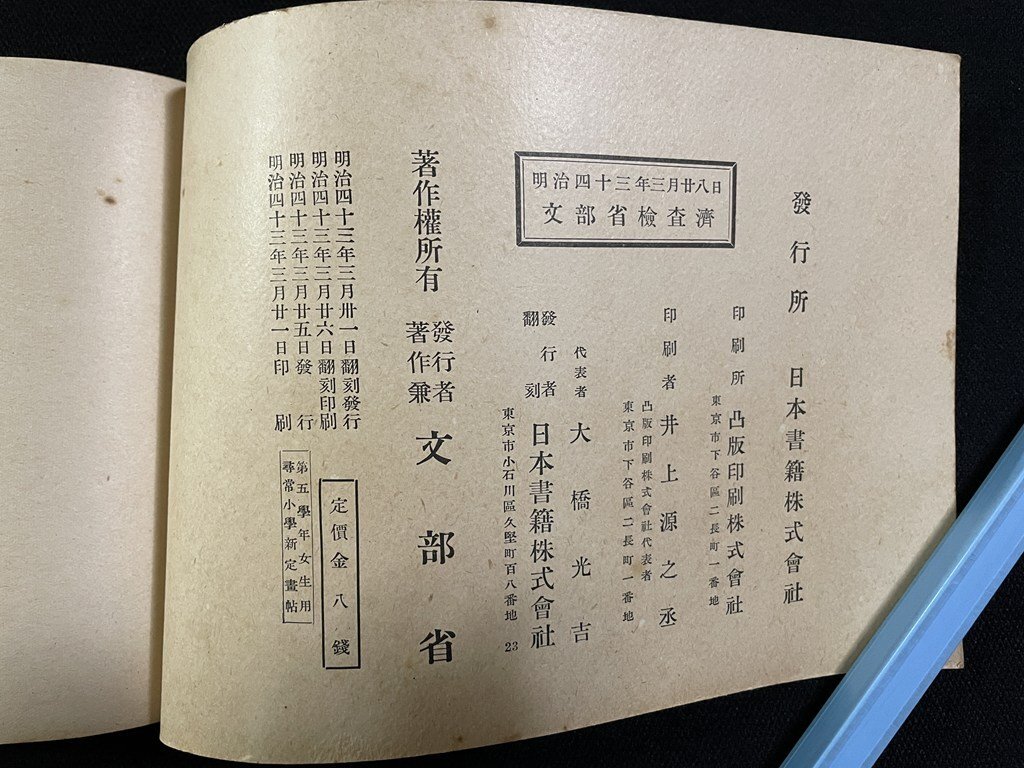 發行所 日本書籍株式會社
印刷所 凸版印刷株式會社
東京市下谷區二長町一番地
印刷者 井上源之丞
凸版印刷株式會社代表者
東京市下谷區二長町一番地
明治四十三年三月廿八日
文部省檢查濟
代表者 大橋光吉
翻刻發行者 日本書籍株式會社
東京市小石川區久堅町百八番地
23
著作權所有 著作兼發行者 文部省
明治四十三年三月卅一日翻刻發行
明治四十三年三月廿六日翻刻印刷
明治四十三年三月廿五日發行
明治四十三年三月廿一日印刷
定價金八錢
第五學年女生用
尋常小學新定畫帖